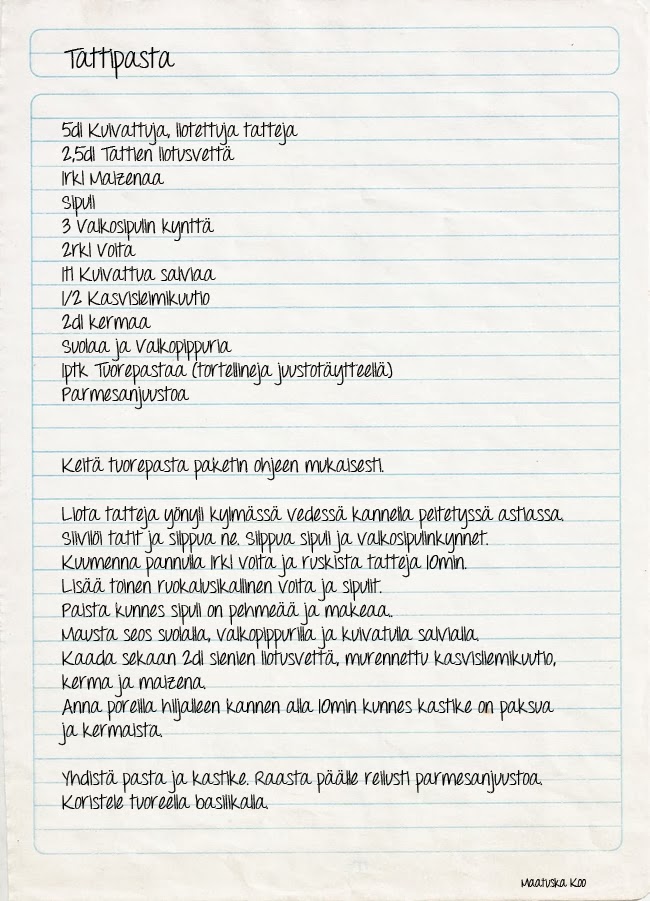 Tattipasta
5dl Kuivattuja, liotettuja tatteja
2,5dl Tattien liotusvettä
1rkl Maizenaa
Sipuli
3 Valkosipulin kynttä
2rkl Voita
1tl Kuivattua salviaa
1/2 Kasvisleimikuutio
2dl kermaa
Suolaa ja Valkopippuria
1ptk Tuorepastaa (tortellineja juustotäytteellä)
Parmesanjuustoa
Keitä tuorepasta paketin ohjeen mukaisesti.
Liota tatteja yönyli kylmässä vedessä kannella peitetyssä astiassa.
Siivilöi tatit ja silppua ne. Silppua sipuli ja valkosipulinkynnet.
Kuumenna pannulla 1rkl voita ja ruskista tatteja 10min.
Lisää toinen ruokalusikallinen voita ja sipulit.
Paista kunnes sipuli on pehmeää ja makeaa.
Mausta seos suolalla, valkopippurilla ja kuivatulla salvialla.
Kaada sekaan 2dl sienien liotusvettä, murennettu kasvisliemikuutio,
kerma ja maizena.
Anna poreilla hiljalleen kannen alla 10min kunnes kastike on paksua
ja kermaista.
Yhdistä pasta ja kastike. Raasta päälle reilusti parmesanjuustoa.
Koristele tuoreella basilikalla.
Maatuska Koo